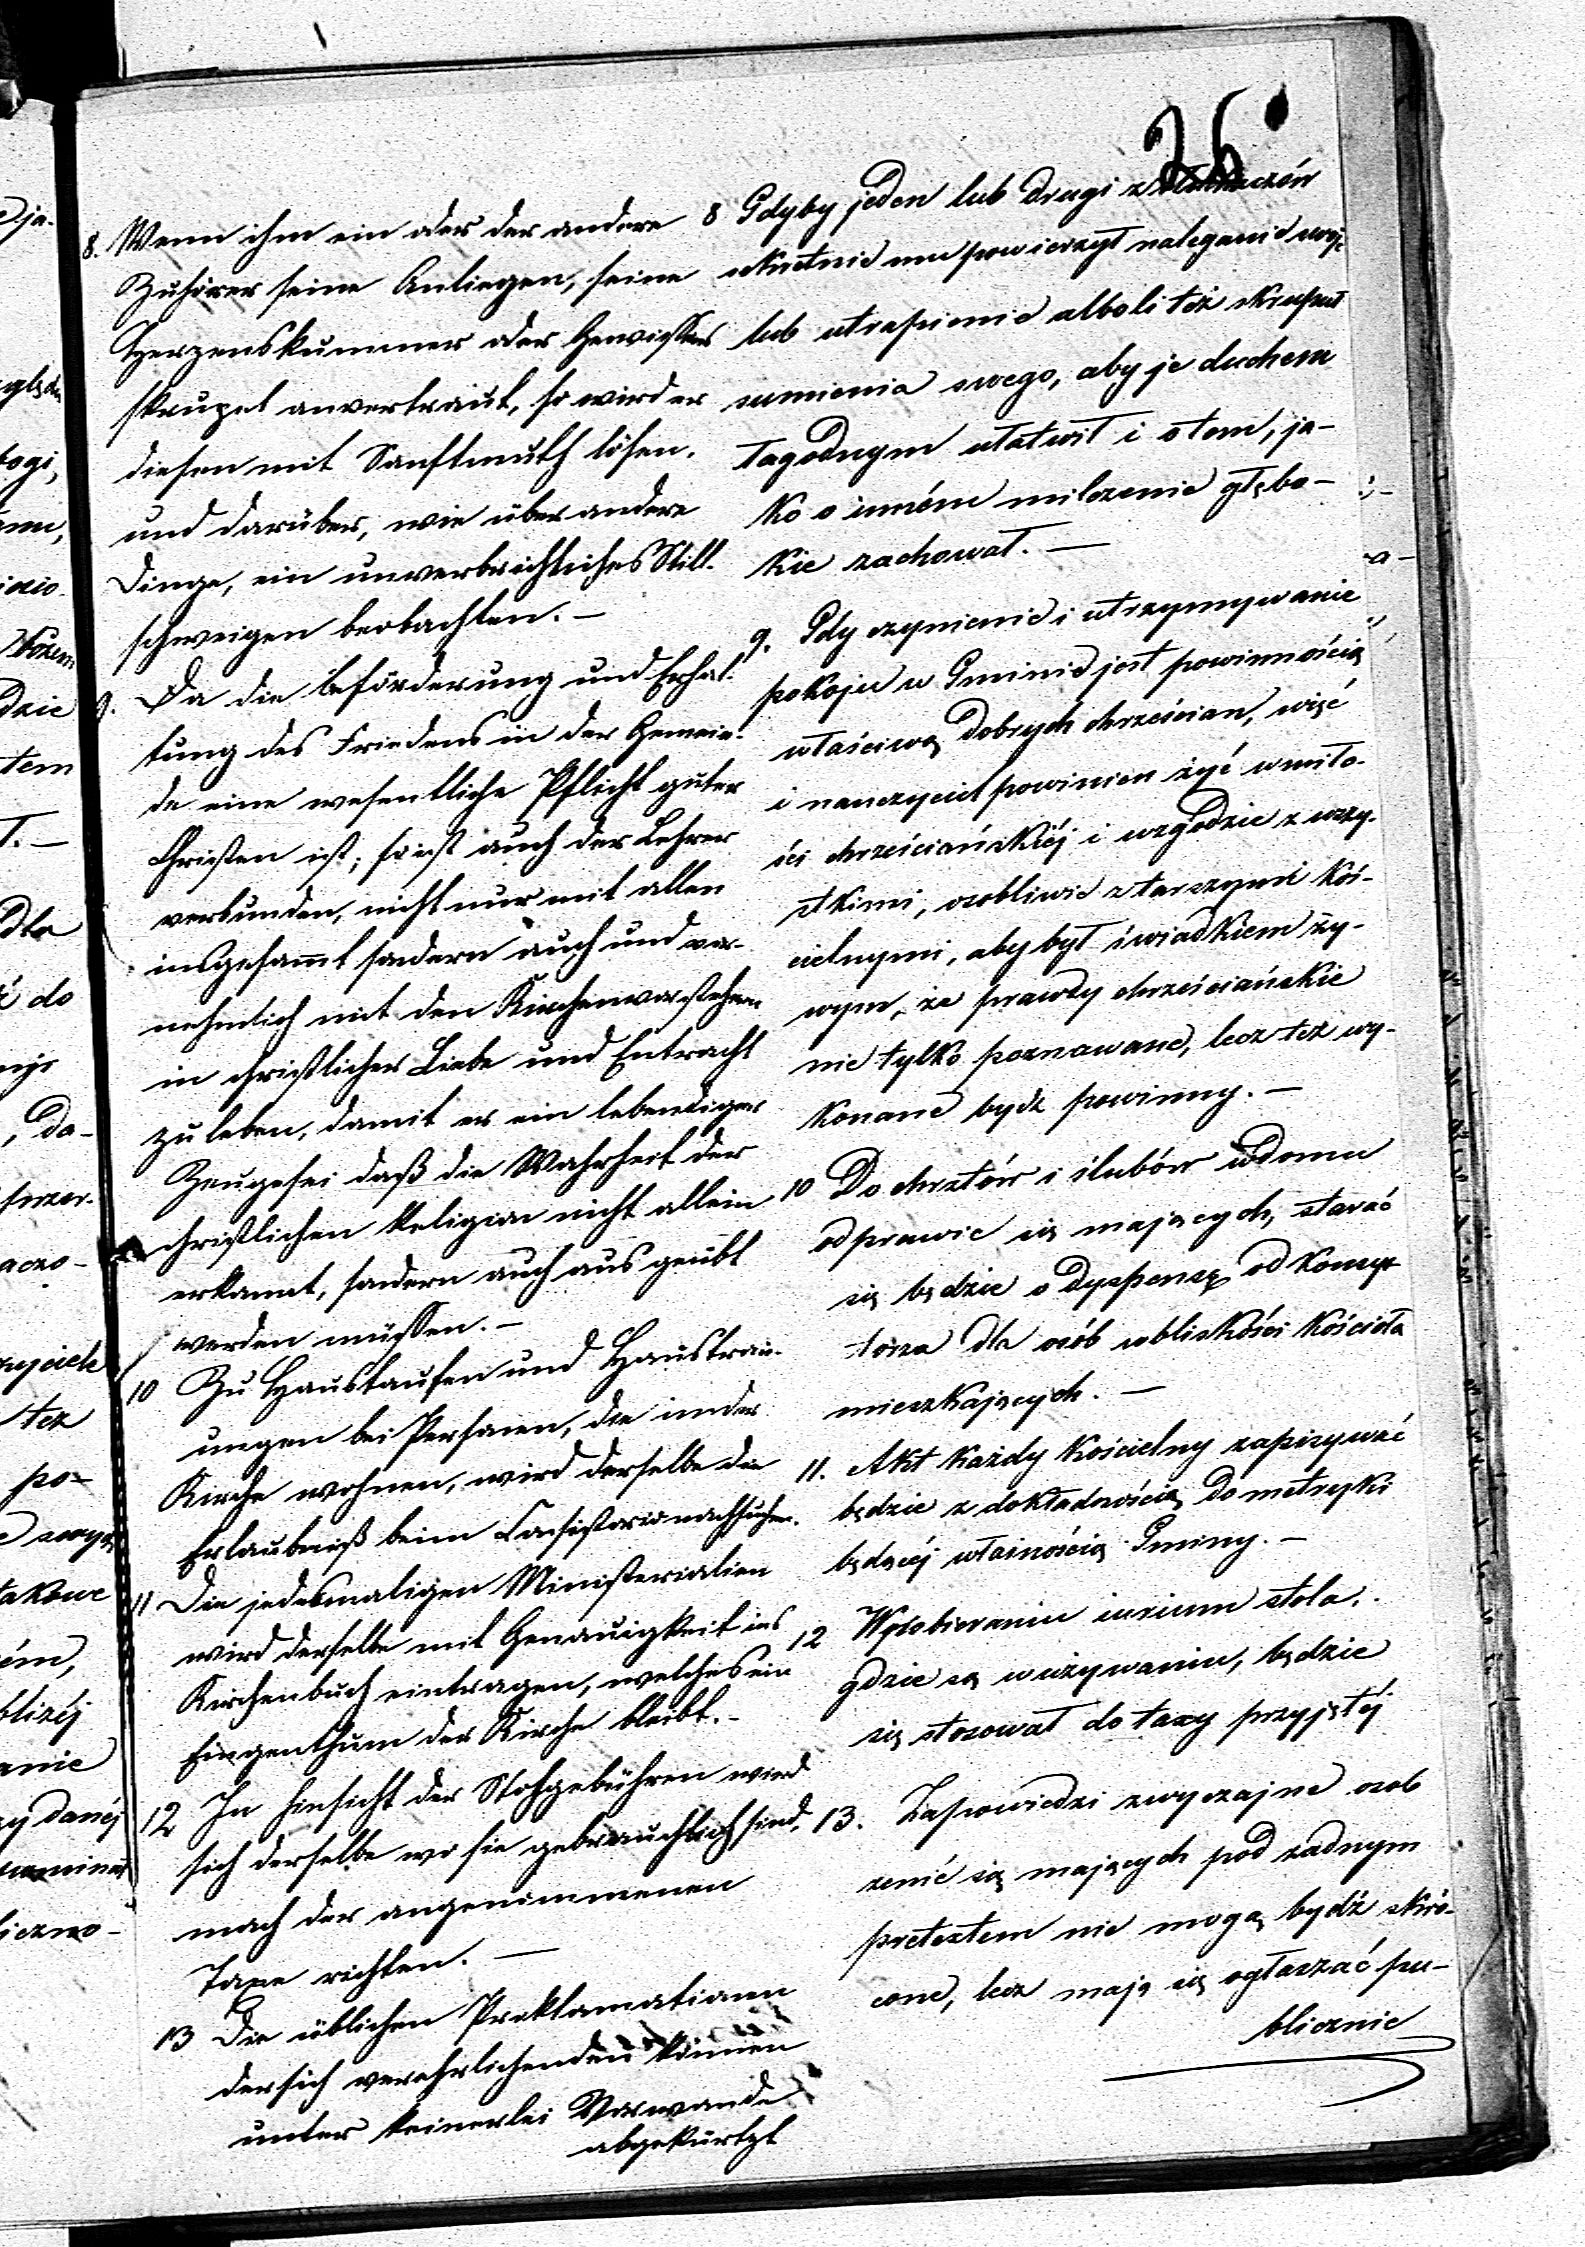 26
8. Wenn ihm ein oder der andere
Zuhörer seine Anliegen, seine
Herzenskummer oder Gewissens
skrupel anvertraut, so wird er
diesen mit Sanftmuth lösen.
und darüber, wie über andere
Dinge, ein unverbrüchliches Still-
schweigen beobachten. –
9. Da die Beförderung und Erhal-
tung des Friedens in der Gemein-
de eine wesentliche Pflicht guter
Christen ist; so ist auch der Lehrer
verbunden, nicht nur mit allen
insgesamt sondern auch und vor-
nehmlich mit den Kirchenvorstehern
in christlicher Liebe und Eintracht
zu leben, damit er ein lebendiger
Zeuge sei daß die Wahrheit der
christlichen Religion nicht allein
erkannt, sondern auch ausgeübt
werden müssen. –
10 Zu Haustaufen und Haustrau-
ungen bei Personen, die in der
Kirche wohnen, wird derselbe die
Erlaubniß beim Consistorio nachsuchen.
11 Die jedesmaligen Ministerialien
wird derselbe mit Genauigkeit ins
Kirchenbuch eintragen, welches ein
Eingenthum der Kirche bleibt. –
12 In Hinsicht der Stohgebühren wird
sich derselbe wo sie gebräuchlich sind,
nach der angenommenen
Taxe richten. –
13 Die üblichen Proklamationen
der sich verehrlichenden können
unter keinerlei Vorwande
abgekürtzt
8 Gdyby jeden lub drugi z
mu powierzył naleganie swoje
lub utrapienie alboli też skrupuł
sumienia swego, aby je duchem
łagodnym ułatwił i o tem, ja-
ko o inném milczenie głębo-
kie zachował. –
9. Gdy czynienie i utrzymywanie
pokoju w Gminie jest powinnością
właściwą dobrych chrześcian, więć
i nauczyciel powinien żyć w miło-
ści chrześciańskiéj i wzgodzie z wszy-
stkimi, osobliwie z starszymi koś-
cielnymi, aby był świadkiem ży-
wym, że prawdy chrześciańskie
nie tylko poznawane, lecz też wy-
konane bydź powinny. –
10 Do chrztów i ślubów w domu
odprawic się mających, starać
się będzie o dyspensę od Konsys-
torza dla osób w bliskości kościoła
mieszkających. –
11. Akt każdy kościelny zapisywać
będzie z dokładnością do metryki
będącéj własnością Gminy. –
12 W pobieraniu iurium stola.
gdzie są w używaniu, będzie
się stosował do taxy przyjętéj
13. Zapowiedzi zwyczajne osob
żenić się mających pod żadnym
pretextem nie mogą bydź skró-
cone, lecz mają się ogłaszać pu-
blicznie